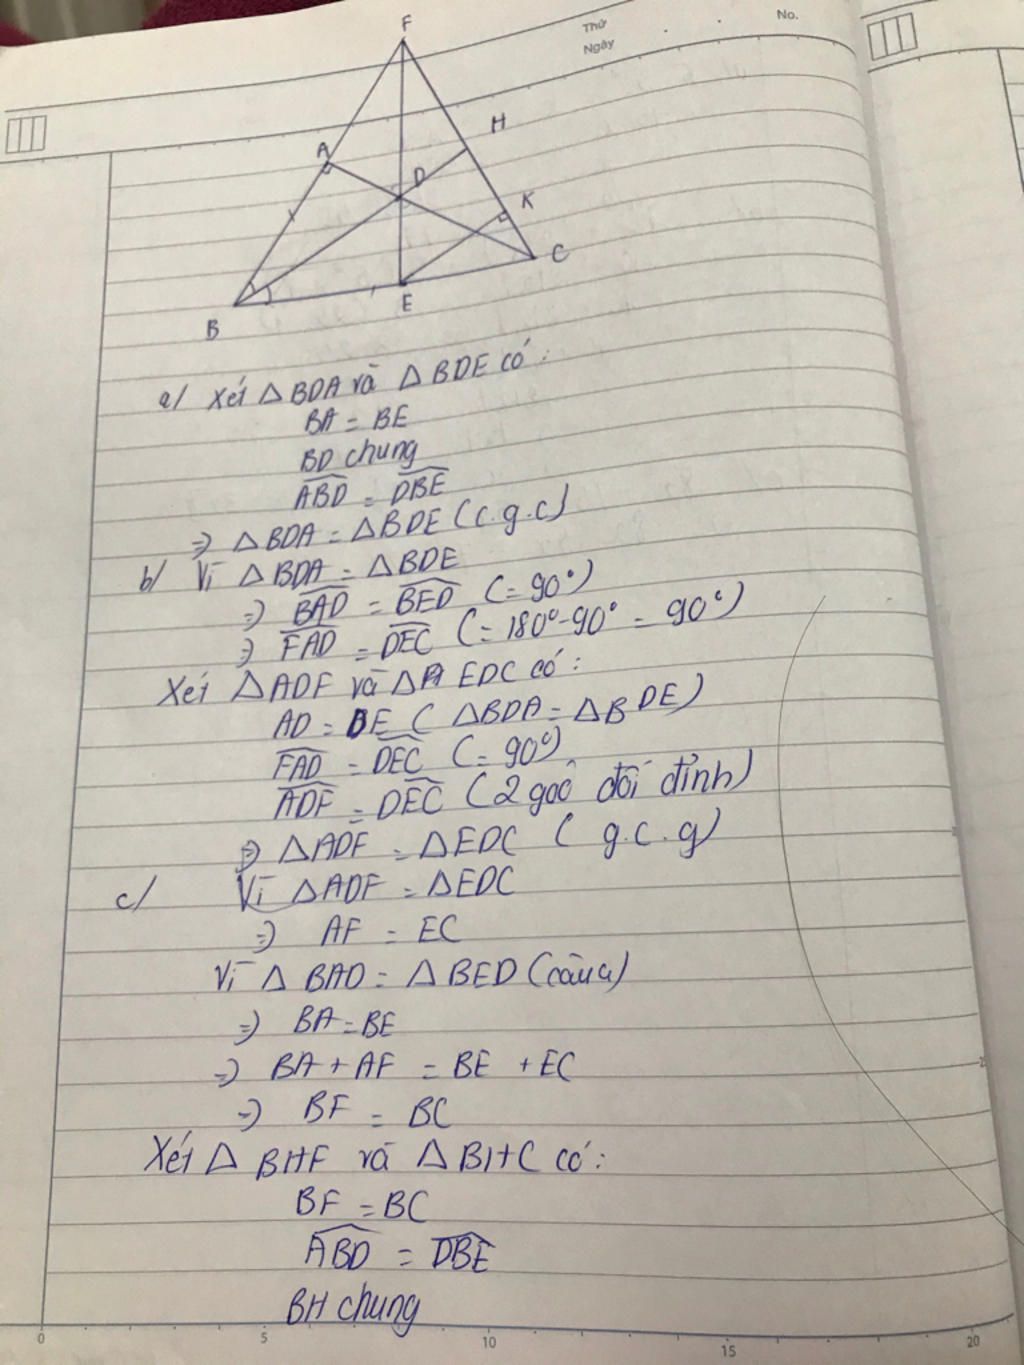 Thứ
Ngày
No.
F
A
H
D
K
C
B
E
a/ Xét △BDA và △BDE có:
BA = BE
BD chung
ABD = DBE
=> △BDA = △BDE (c.g.c)
b/ Vì △BDA = △BDE
=> BAD = BED (= 90°)
=> FAD = DEC (= 180°-90° = 90°)
Xét △ADF và △EDC có:
AD = DE (△BDA = △BDE)
FAD = DEC (= 90°)
ADF = DEC (2 góc đối đỉnh)
=> △ADF = △EDC (g.c.g)
c/ Vì △ADF = △EDC
=> AF = EC
Vì △BAD = △BED (câu a)
=> BA = BE
=> BA + AF = BE + EC
=> BF = BC
Xét △BHF và △BHC có:
BF = BC
ABD = DBE
BH chung
0 5 10 15 20